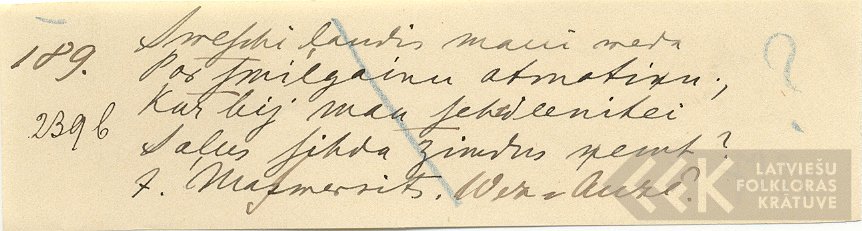 189.
2396
Sweschi ļaudis mani weda
Par smilgainu atmatinu;
Kur bij man sehdeenitei
Saļus sihda zimdus ņemt?
J. Masmersits. Wez-Auze?
?
LATVIEŠU
FOLKLORAS
KRĀTUVE